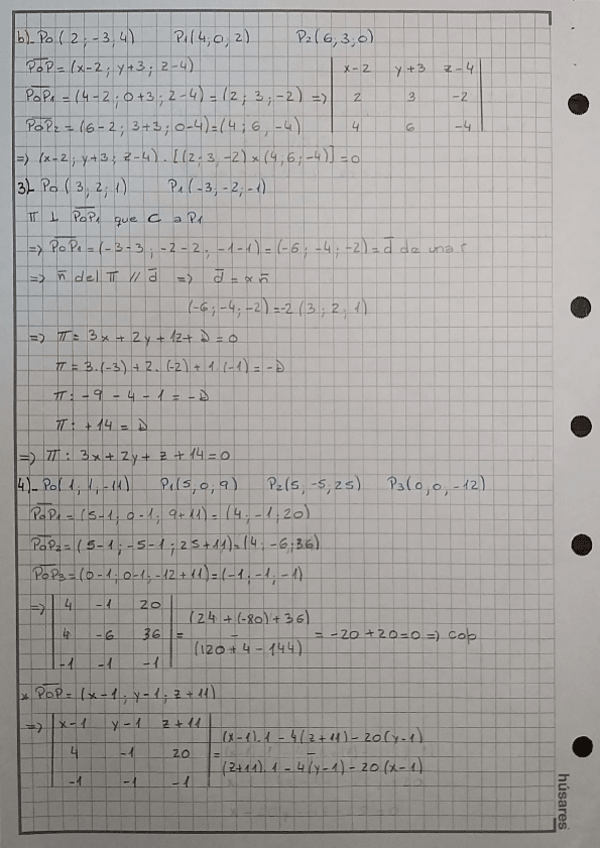 b)- P0(2;-3,4) P1(4,0,2) P2(6,3,0)
P0P=(x-2; y+3; z-4)
P0P1=(4-2; 0+3; 2-4)=(2; 3; -2) => | x-2 y+3 z-4 |
P0P2=(6-2; 3+3; 0-4)=(4; 6, -4) | 2 3 -2 | 4 6 -4 |
=> (x-2; y+3; z-4) . [(2; 3, -2) x (4; 6; -4)] = 0
3)- P0(3; 2; 1) P1(-3, -2; -1)
π ⊥ P0P1 que C a P1
=> P0P1=(-3-3; -2-2; -1-1)=(-6; -4; -2)=d de una r
=> n del π // d => d = α n
(-6; -4; -2)=-2(3; 2, 1)
=> π= 3x+2y+1z+D=0
π= 3.(-3)+2.(-2)+1.(-1)=-D
π: -9 -4 -1 = -D
π: +14 = D
=> π: 3x+2y+z+14=0
4)- P0(1; 1, -11) P1(5, 0, 9) P2(5, -5, 25) P3(0, 0, -12)
P0P1=(5-1; 0-1; 9+11)=(4; -1; 20)
P0P2=(5-1; -5-1; 25+11)=(4; -6; 36)
P0P3=(0-1; 0-1; -12+11)=(-1; -1, -1)
=> | 4 -1 20 |
| 4 -6 36 | = (24+(-80)+36) - (120+4-144) = -20+20=0 => cop
| -1 -1 -1 |
* P0P=(x-1; y-1; z+11)
=> | x-1 y-1 z+11 | (x-1).1-4(z+11)-20(y-1)
| 4 -1 20 | = -
| -1 -1 -1 | (z+11).1-4(y-1)-20.(x-1)
húsares